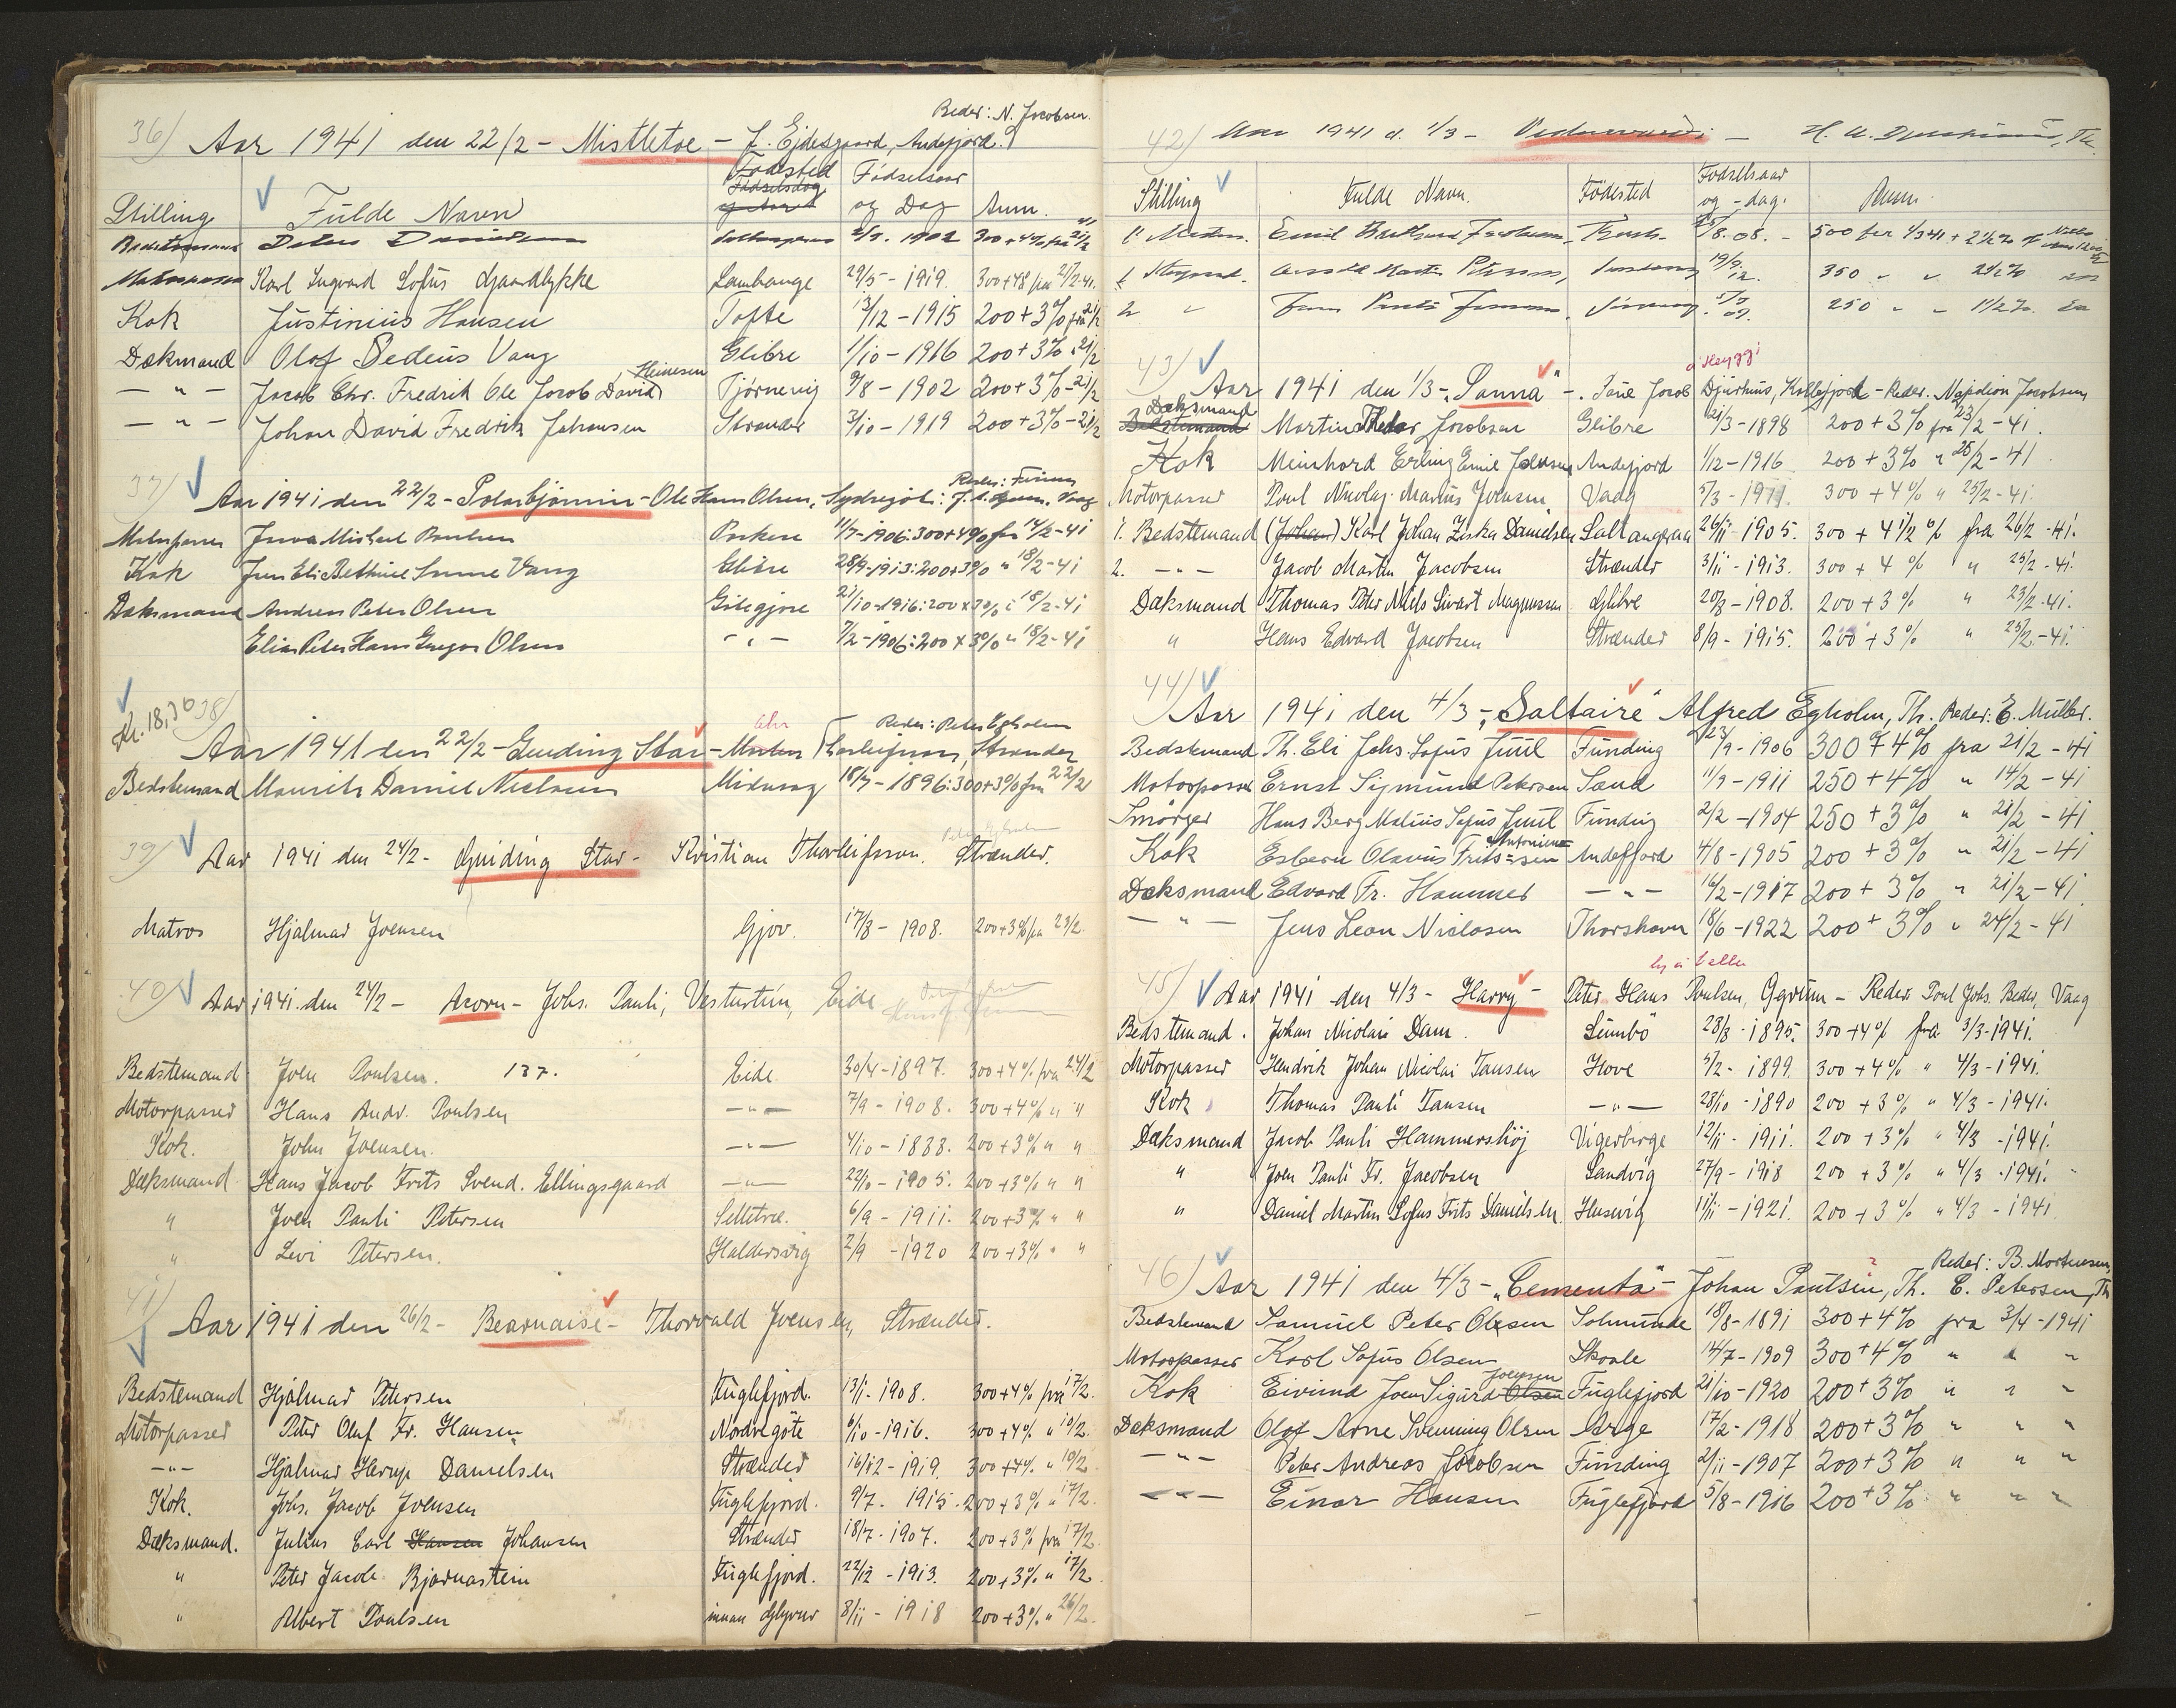 Reder: N. Jacobsen.
36) Aar 1941 den 22/2 - Mistletoe - J. Ejdesgaard, Andefjord.
Stilling Fulde Navn Fødested Fødselsdag Fødselsaar og Dag Anm.
Bedstemand 1902 300+4% fra
Motorpasser Karl Ingvard Sofus Gaardlykke Lambauge 29/5 - 1919. 300+48 fra 21/2-41.
Kok Justinius Hansen Tofte 13/12 - 1915 200+3% fra 21/2
Dækmand Olof Sedeus Vang Glibre 1/10 - 1916 200+3% 21/2
— " — Jacob Chr. Fredrik Ole Jacob David Heinesen Tjørnevig 9/8 - 1902 200+3% - 21/2
— " — Johan David Fredrik Johansen Strænder 3/10 - 1919 200+3% - 21/2
37) Aar 1941 den 22/2 - Polarbjørnin - Ole Hans Olsen, Sydregöt: Reder: Vaag
Motorpasser Michael Poulsen Porkere 11/7-1906: 300+4% fra 14/2-41
Kok Jens Eli Bethuel Vang Glibre 28/9-1913: 200+3% " 18/2-41
Dæksmand Andreas Peter Olsen Götegjov 21/10-1916: 200 x 3% " 18/2-41
Elias Peter Hans Gregor Olsen - " - 7/2-1906: 200 x 3% " 18/2-41
Kr. 18,30
38) Aar 1941 den 22/2 - Guiding Star - Thorleifsson, Strænder Reder: Peter Egholm
Bedstemand Mourits Daniel Niclasen Midvaag 18/7 - 1896: 300+3% fra 22/2
39) Aar 1941 den 24/2 - Guiding Star - Kristian Thorleifsson. Strænder.
Matros Hjalmar Joensen Gjov. 17/8 - 1908. 200+3% fra 23/2.
40) Aar 1941 den 24/2 - Acorn - Johs. Pauli, Vesturtún, Eide
Bedstemand Joen Poulsen. 137. Eide 30/4-1897. 300+4% fra 24/2
Motorpasser Hans Andr. Poulsen — " — 7/9 - 1908. 300+4% " "
Kok. John Joensen. — " — 4/10 - 1888. 200+3% " "
Dæksmand Hans Jacob Frits Svend. Ellingsgaard — " — 22/10 - 1905. 200+3% " "
" Joen Pauli Petersen Selletræ. 6/9 - 1911. 200+3% " "
" Levi Petersen. Haldersvig 2/9 - 1920 200+3% " "
41) Aar 1941 den 26/2 - Bearnaise - Thorvald Joensen, Strænder.
Bedstemand Hjalmar Petersen Fuglefjord. 13/1 - 1908. 300+4% fra 17/2.
Motorpasser Peter Oluf Fr. Hansen Nordregöte 6/10 - 1916. 300+4% " 10/2.
— " — Hjalmar Herup Danielsen Strænder 16/12 - 1919. 300+4% " 19/2.
Kok. Johs. Jacob Joensen Fuglefjord. 9/7. 1915. 200+3% " 17/2.
Dæksmand. Julius Carl Hansen Johansen Strænder 18/7 - 1907. 200+3% fra 17/2.
" Peter Jacob Bjarnastein Fuglefjord. 22/12 - 1913. 200+3% " 17/2
" Albert Poulsen innan Glyvur 8/11 - 1918 200+3% " 26/2.
42) Aar 1941 d. 1/3 - H. A. Th.
Stilling Fulde Navn. Fødested Fødselsaar og - dag. Anm.
1. Emil 8.08. - 500 fra 1/3 41 + 2½%
1. 19/9 12. 350 " " 2½%
2 " 250 " " 1½%
á Heyggi
43) Aar 1941 den 1/3 - "Sanna" - Poul Jacob Djurhuus, Kollefjord - Reder. Napoleon Jacobsen
Dæksmand Bedstemand Martin Jacobsen Glibre 21/3 - 1898 200+3% fra 23/2 - 41.
Kok Meinhard Erling Emil Joensen Andefjord 1/12 - 1916 200+3% " 26/2 - 41
Motorpasser Poul Nicolaj Marius Joensen Vaag 5/3 - 1911. 300+4% " 25/2 - 41.
1. Bedstemand (Johan) Karl Johan Ziska Danielsen Saltangeraa 26/11 - 1905. 300 + 4 1/2 % fra 26/2 - 41.
2. — " — Jacob Martin Jacobsen Strænder 3/11 - 1913. 300 + 4 % " 25/2 - 41.
Dæksmand Thomas Peter Niels Sivart Magnussen Glibre 20/8 - 1908. 200 + 3 % " 23/2 - 41.
" Hans Edvard Jacobsen Strænder 8/9 - 1915. 200 + 3% " 25/2 - 41.
44) Aar 1941 den 4/3 - "Saltaire" Alfred Egholm, Th. Reder: E. Müller.
Bedstemand Th. Eli Johs. Sofus Juul Funding 23/9 - 1906 300 + 4% fra 21/2 - 41
Motorpasser Ernst Sigmund Petersen Sand 11/9 - 1911 250 + 4% " 14/2 - 41
Smörger Hans Berg Malius Sofus Juul Funding 2/2 - 1904 250 + 3% " 21/2 - 41
Kok Esbern Olavus Frits Andefjord 4/8 - 1905 200 + 3% " 21/2 - 41
Dæksmand Edvard Fr. Hammer — " — 16/2 - 1917 200 + 3% " 21/2 - 41
— " — Jens Leon Niclasen Thorshavn 18/6 - 1922 200 + 3% " 24/2 - 41
45) Aar 1941 den 4/3 - Harry - Peter Hans Poulsen, Qvrum - Reder Poul Johs. Reder, Vaag
Bedstemand. Johan Nicolai Dam. Sumbö 28/3 - 1895. 300+4% fra 3/3 - 1941.
Motorpasser Hendrik Johan Nicolai Tausen Hove 5/2 - 1899. 300+4% " 4/3 - 1941.
Kok Thomas Pauli Tausen — " — 28/10 - 1890 200 + 3% " 4/3 - 1941.
Dæksmand Jacob Pauli Hammershöj Vigerbirge 12/11 - 1911. 200 + 3% " 4/3 - 1941.
" Joen Pauli Fr. Jacobsen Sandvig 27/9 - 1918 200 + 3% " 4/3 - 1941.
" Daniel Martin Sofus Frits Danielsen. Husevig 11/11 - 1921. 200 + 3% " 4/3 - 1941.
Reder: B. Mortensen,
46) Aar 1941 den 4/3 - "Cementa" - Johan Poulsen, Th. E. Petersen, Th
Bedstemand Samuel Peter Olsen Solmunde 18/8 - 1891 300+4% fra 3/4 - 1941
Motorpasser Karl Sofus Olsen Skaale 14/7 - 1909 300+4% " " "
Kok Eivind Joen Sigurd Olsen Joensen Fuglefjord 21/10 - 1920 200+3% " " "
Dæksmand Olof Arne Svenning Olsen Arge 17/2 - 1918 200+3% " " "
— " — Peter Andreas Jacobsen Funding 2/11 - 1907 200+3% " " "
— " — Einar Hansen Fuglefjord 5/8 - 1916 200+3% " " "